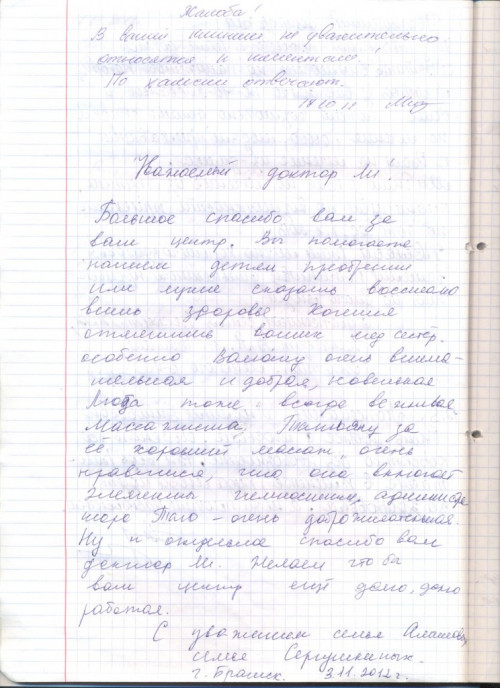 Жалоба!
В вашей клинике не уважительно
относятся к клиентам!
По хамски отвечают.
14 10 11
Уважаемый доктор Ли!
Большое спасибо вам за
ваш центр. Вы помогаете
нашим детям приобрести
или лучше сказать восстано
вить здоровье. Хочется
отметить ваших мед сестер,
особенно очень внима-
тельная и добрая, новенькая
Люда тоже - всегда вежливая.
Массажиста Татьяну за
её хороший массаж, очень
нравится, что она включает
элементы гимнастики, админист
тора - очень доброжелательная
Ну и отдельное спасибо вам
доктор Ли. Желаем что ба
вам центр ещё долго, долго
работал.
С уважением семья
семья Сергушкиных.
г. Братск. 3.11.2012 г.